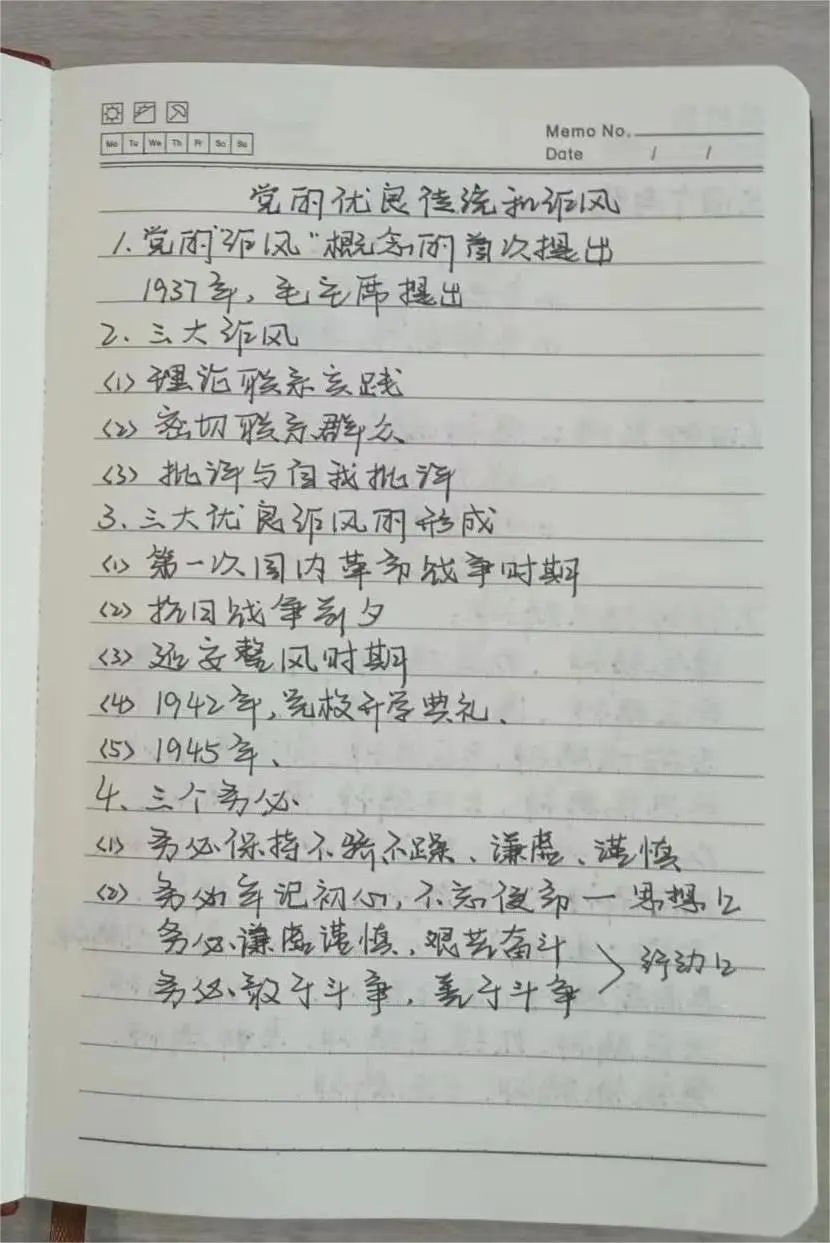 Mo Tu We Th Fr Sa Su
Memo No.
Date / /
党的优良传统和作风
1. 党的“作风”概念的首次提出
1937年，毛主席提出
2、三大作风
(1) 理论联系实践
(2) 密切联系群众
(3) 批评与自我批评
3、三大优良作风的形成
(1) 第一次国内革命战争时期
(2) 抗日战争前夕
(3) 延安整风时期
(4) 1942年，党校开学典礼、
(5) 1945年、
4、三个务必
(1) 务必保持不骄不躁、谦虚、谨慎
(2) 务必牢记初心，不忘使命 — 思想上
务必谦虚谨慎，艰苦奋斗
行动上
务必敢于斗争，善于斗争